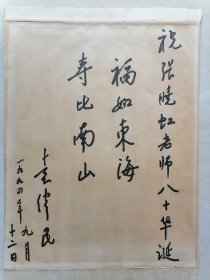 祝張曉虹老师八十华誕
福如東海
寿比南山
一九九四年九月
十二日